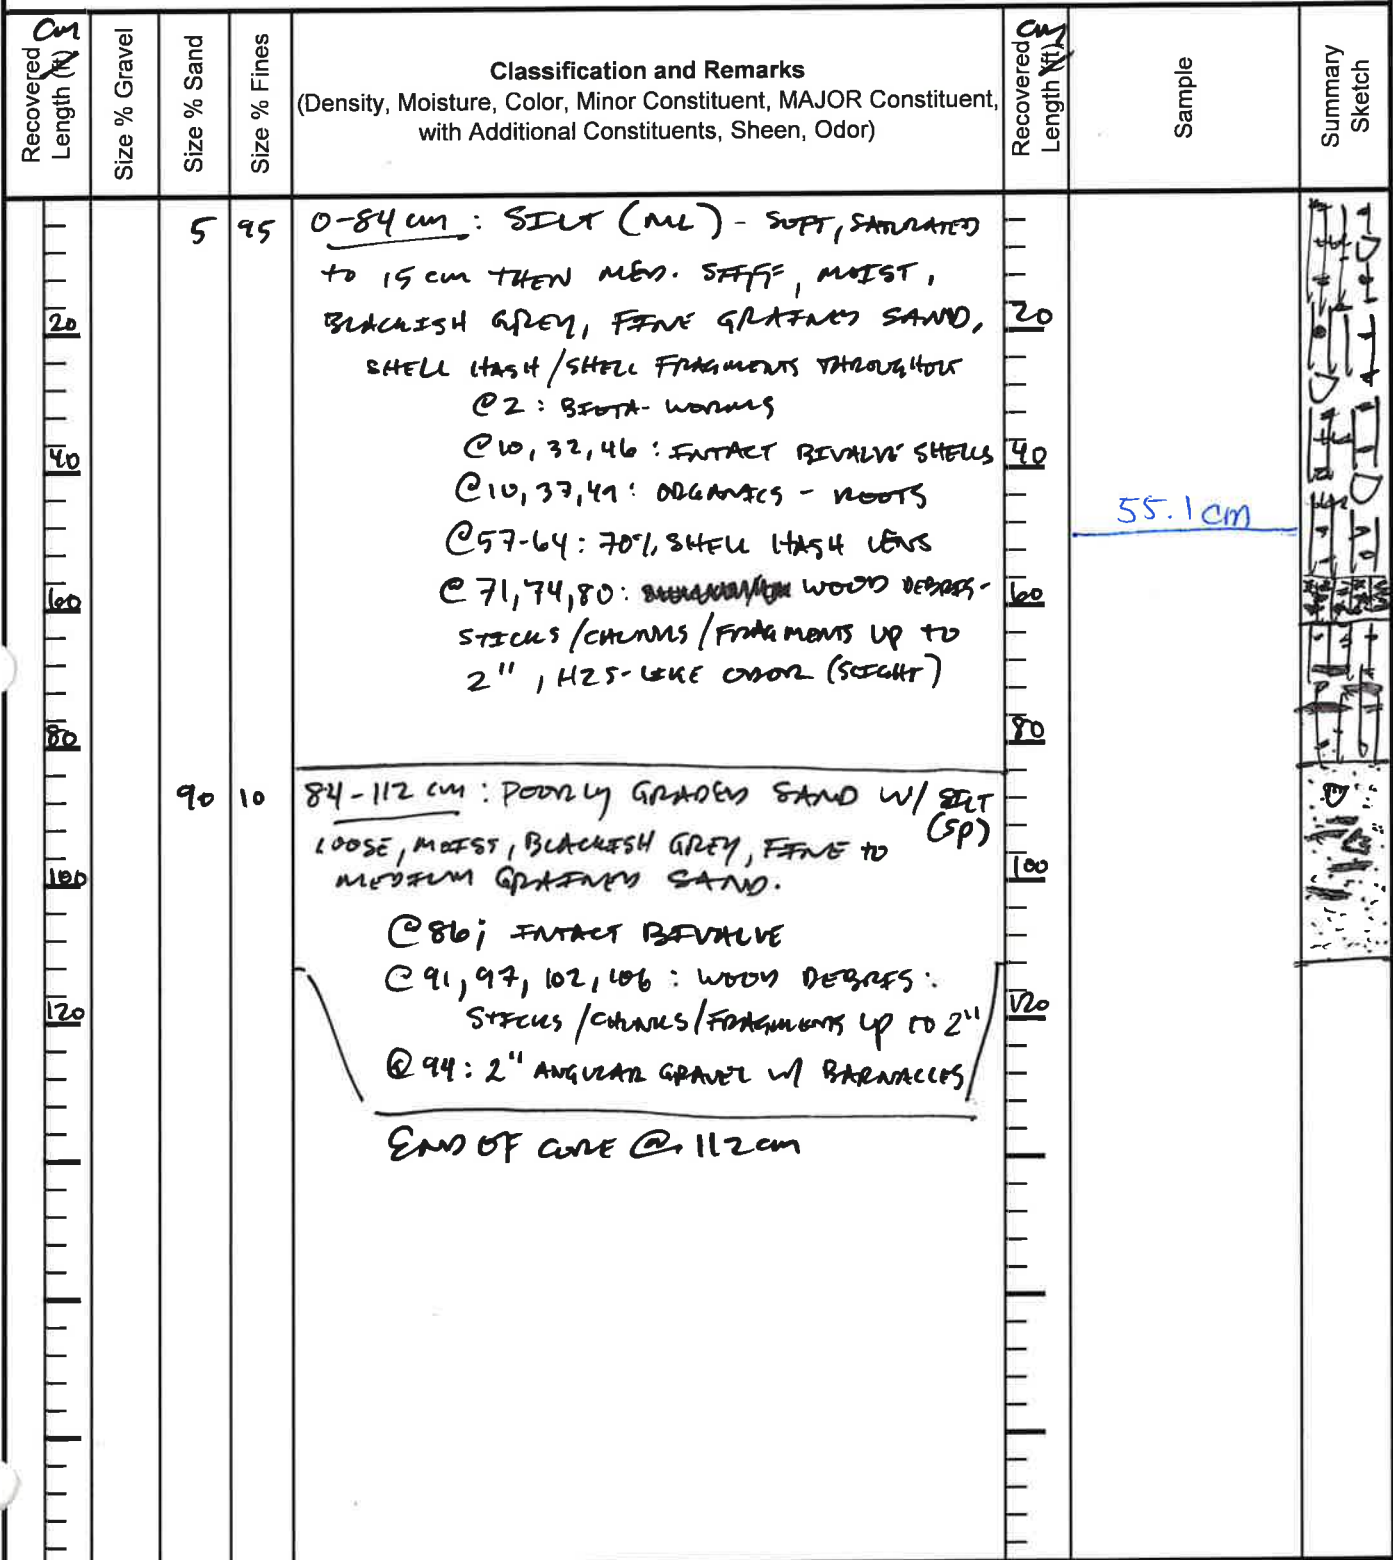 Recovered Length (ft) cm
Size % Gravel
Size % Sand
Size % Fines
Classification and Remarks
(Density, Moisture, Color, Minor Constituent, MAJOR Constituent,
with Additional Constituents, Sheen, Odor)
Recovered Length (ft) cm
Sample
Summary Sketch
5 95 0-84 cm : SILT (ML) - SOFT, SATURATED
to 15 cm THEN MED. STIFF, MOIST,
20 BLACKISH GREY, FINE GRAINED SAND, 20
SHELL HASH/SHELL FRAGMENTS THROUGHOUT
@2 : BIOTA- WORMS
40 @10, 32, 46 : INTACT BIVALVE SHELLS 40
@10, 37, 49 : ORGANICS - ROOTS
55.1 cm
@57-64 : 70% SHELL HASH LENS
60 @ 71, 74, 80 : WOOD DEBRIS- 60
STICKS/CHUNKS/FRAGMENTS UP to
2", H2S-LIKE ODOR (SLIGHT)
80 80
90 10 84-112 cm : POORLY GRADED SAND W/ SILT
(SP)
LOOSE, MOIST, BLACKISH GREY, FINE to
100 MEDIUM GRAINED SAND. 100
@86; INTACT BIVALVE
@ 91, 97, 102, 106 : WOOD DEBRIS :
120 STICKS/CHUNKS/FRAGMENTS UP TO 2" 120
@ 94 : 2" ANGULAR GRAVEL W/ BARNACLES
END OF CORE @ 112 cm